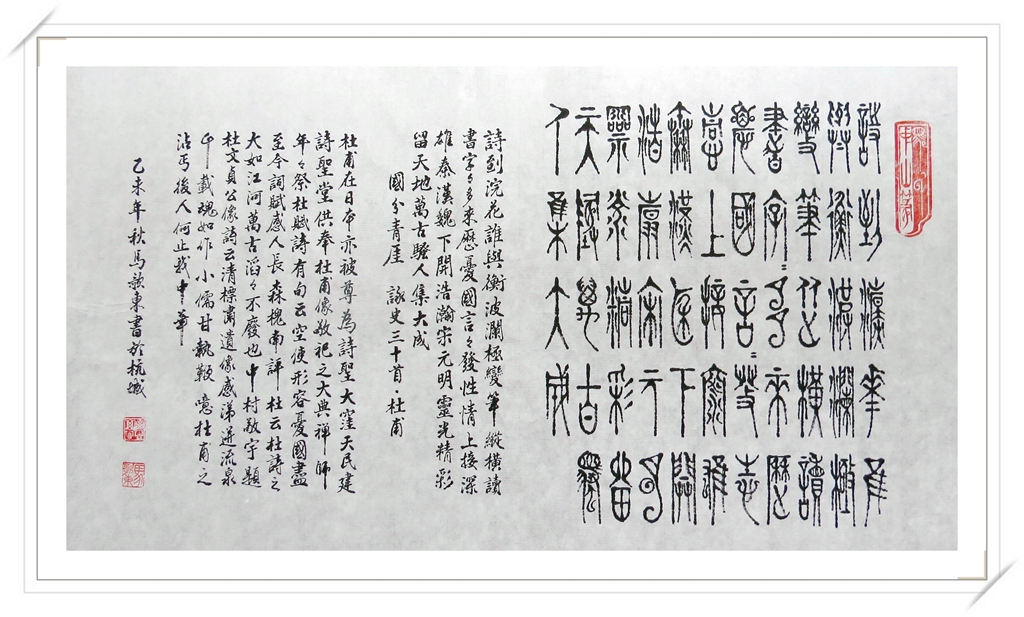 詩到浣花誰
與衡波瀾極
變筆縱橫讀
書字々多來歷
憂國言々發性
情上接深雄
秦漢魏下開
浩瀚宋元明
靈光精彩留
天地萬古騷
人集大成
詩到浣花誰與衡波瀾極變筆縱橫讀
書字々多來歷憂國言々發性情上接深
雄秦漢魏下開浩瀚宋元明靈光精彩
留天地萬古騷人集大成
國分青厓 詠史三十首·杜甫
杜甫在日本亦被尊為詩聖大窪天民建
詩聖堂供奉杜甫像敬祀之大典禪師
年々祭杜賦詩有句云空使形容憂國盡
至今詞賦感人長森槐南評杜云杜詩之
大如江河萬古滔々不廢也中村敬宇題
杜文貞公像詩云清標肅遺像感涕迸流泉
千載魂如作小儒甘執鞭噫杜甫之
沾丐後人何止我中華
乙未年秋馬歆東書於杭城